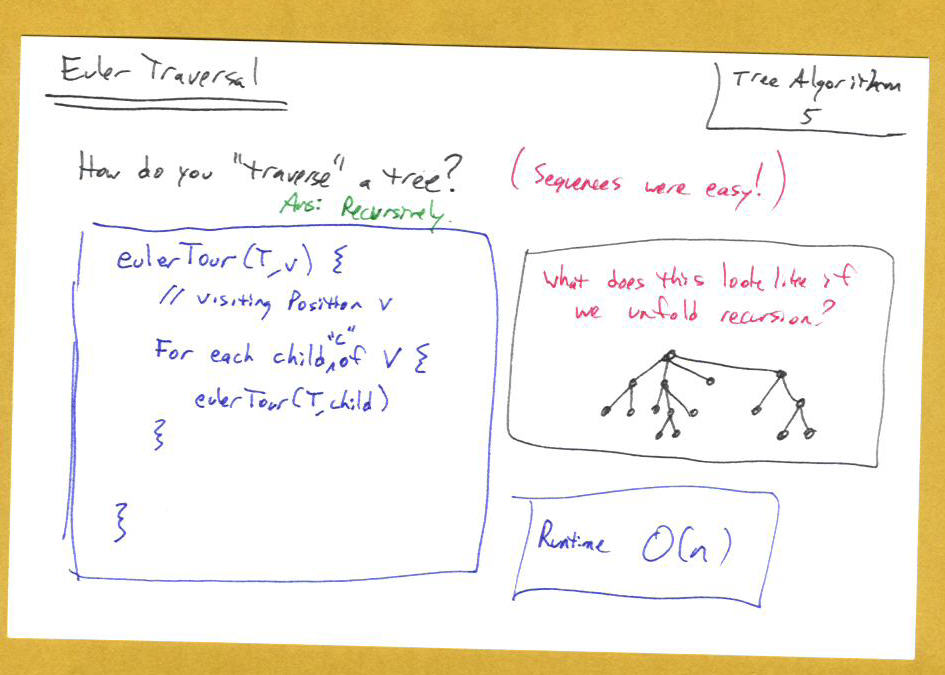 Euler Traversal
Tree Algorithm
5
How do you "traverse" a tree?
(Sequences were easy!)
Ans: Recursively.
eulerTour(T,v) {
// visiting Position v
For each child ^"c" of v {
eulerTour(T,child)
}
}
What does this look like if
we unfold recursion?
Runtime O(n)